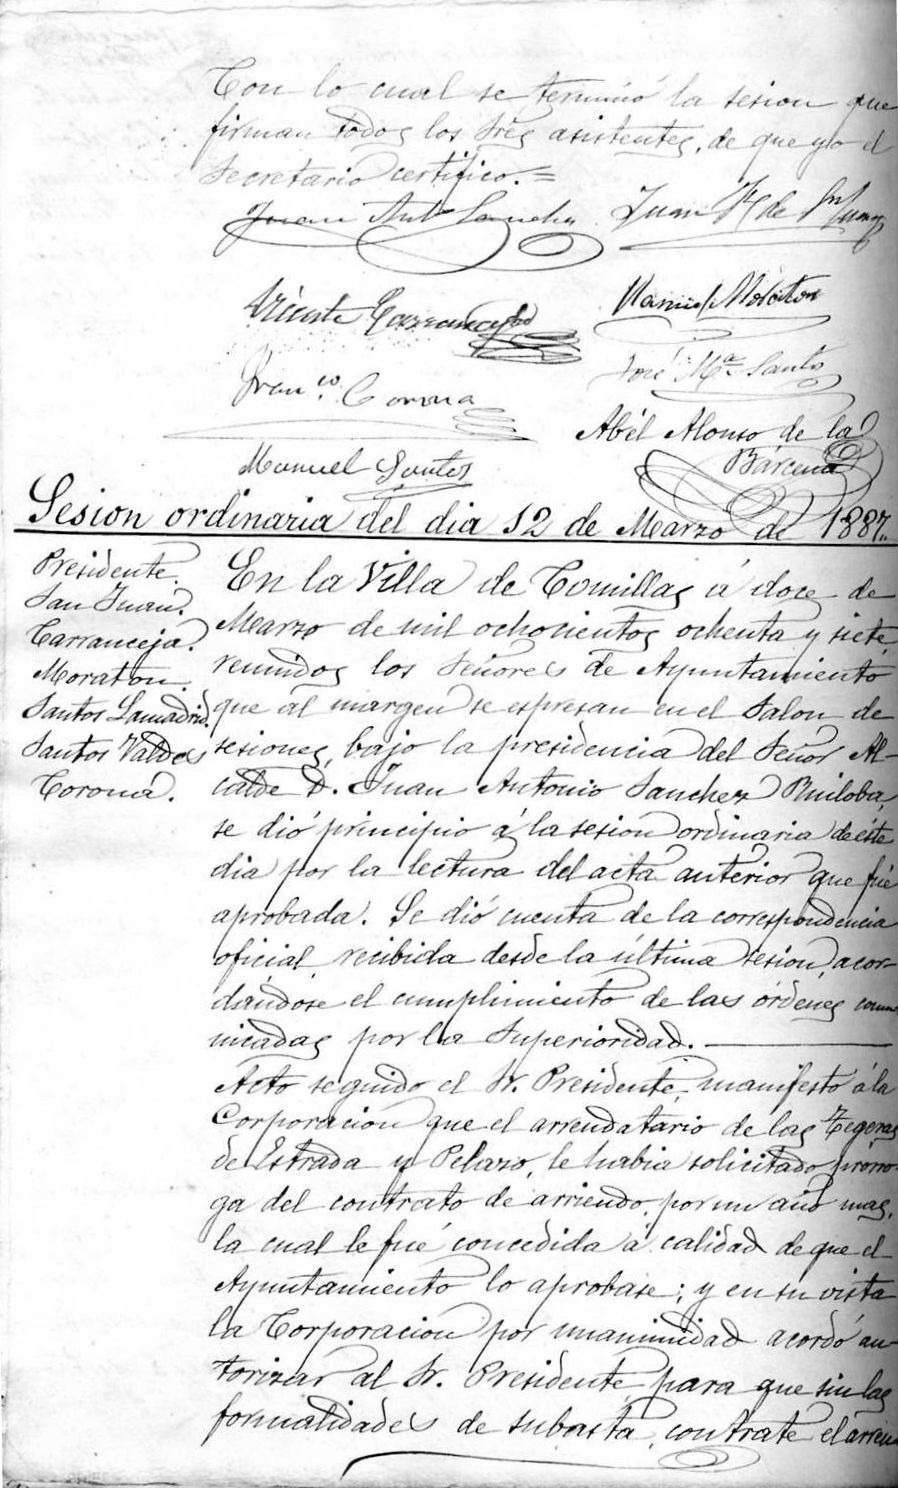 Con lo cual se terminó la sesion que
firman todos los Sres asistentes, de que yo el
Secretario certifico.=
Juan Ant Sanchez
Juan de
Vicente
Manuel Moraton
José Mª Santos
Franco. Corona
Abél Alonso de la
Bárcena
Manuel Santos
Sesion ordinaria del dia 12 de Marzo de 1887.
Presidente.
San Juan.
Carranceja.
Moraton.
Santos Lamadrid.
Santos Valdes
Corona.
En la Villa de Comillas á doce de
Marzo de mil ochocientos ochenta y siete,
reunidos los Señores de Ayuntamiento
que al margen se espresan en el Salon de
sesiones, bajo la presidencia del Señor Al-
calde D. Juan Antonio Sanchez Ruiloba,
se dió principio á la sesion ordinaria de éste
dia por la lectura del acta anterior que fué
aprobada. Se dió cuenta de la correspondencia
oficial recibida desde la última sesion, acor-
dandose el cumplimiento de las órdenes comu
nicadas por la Superioridad.
Acto seguido el Sr. Presidente, manifestó á la
Corporacion que el arrendatario de las Tegeras
de Estrada y Pelazo, le habia solicitado prórro-
ga del contrato de arriendo, por un año mas,
la cual le fué concedida á calidad de que el
Ayuntamiento lo aprobase; y en su vista
la Corporacion por unanimidad acordó au-
torizar al Sr. Presidente para que sin las
formalidades de subasta, contrate el arrien